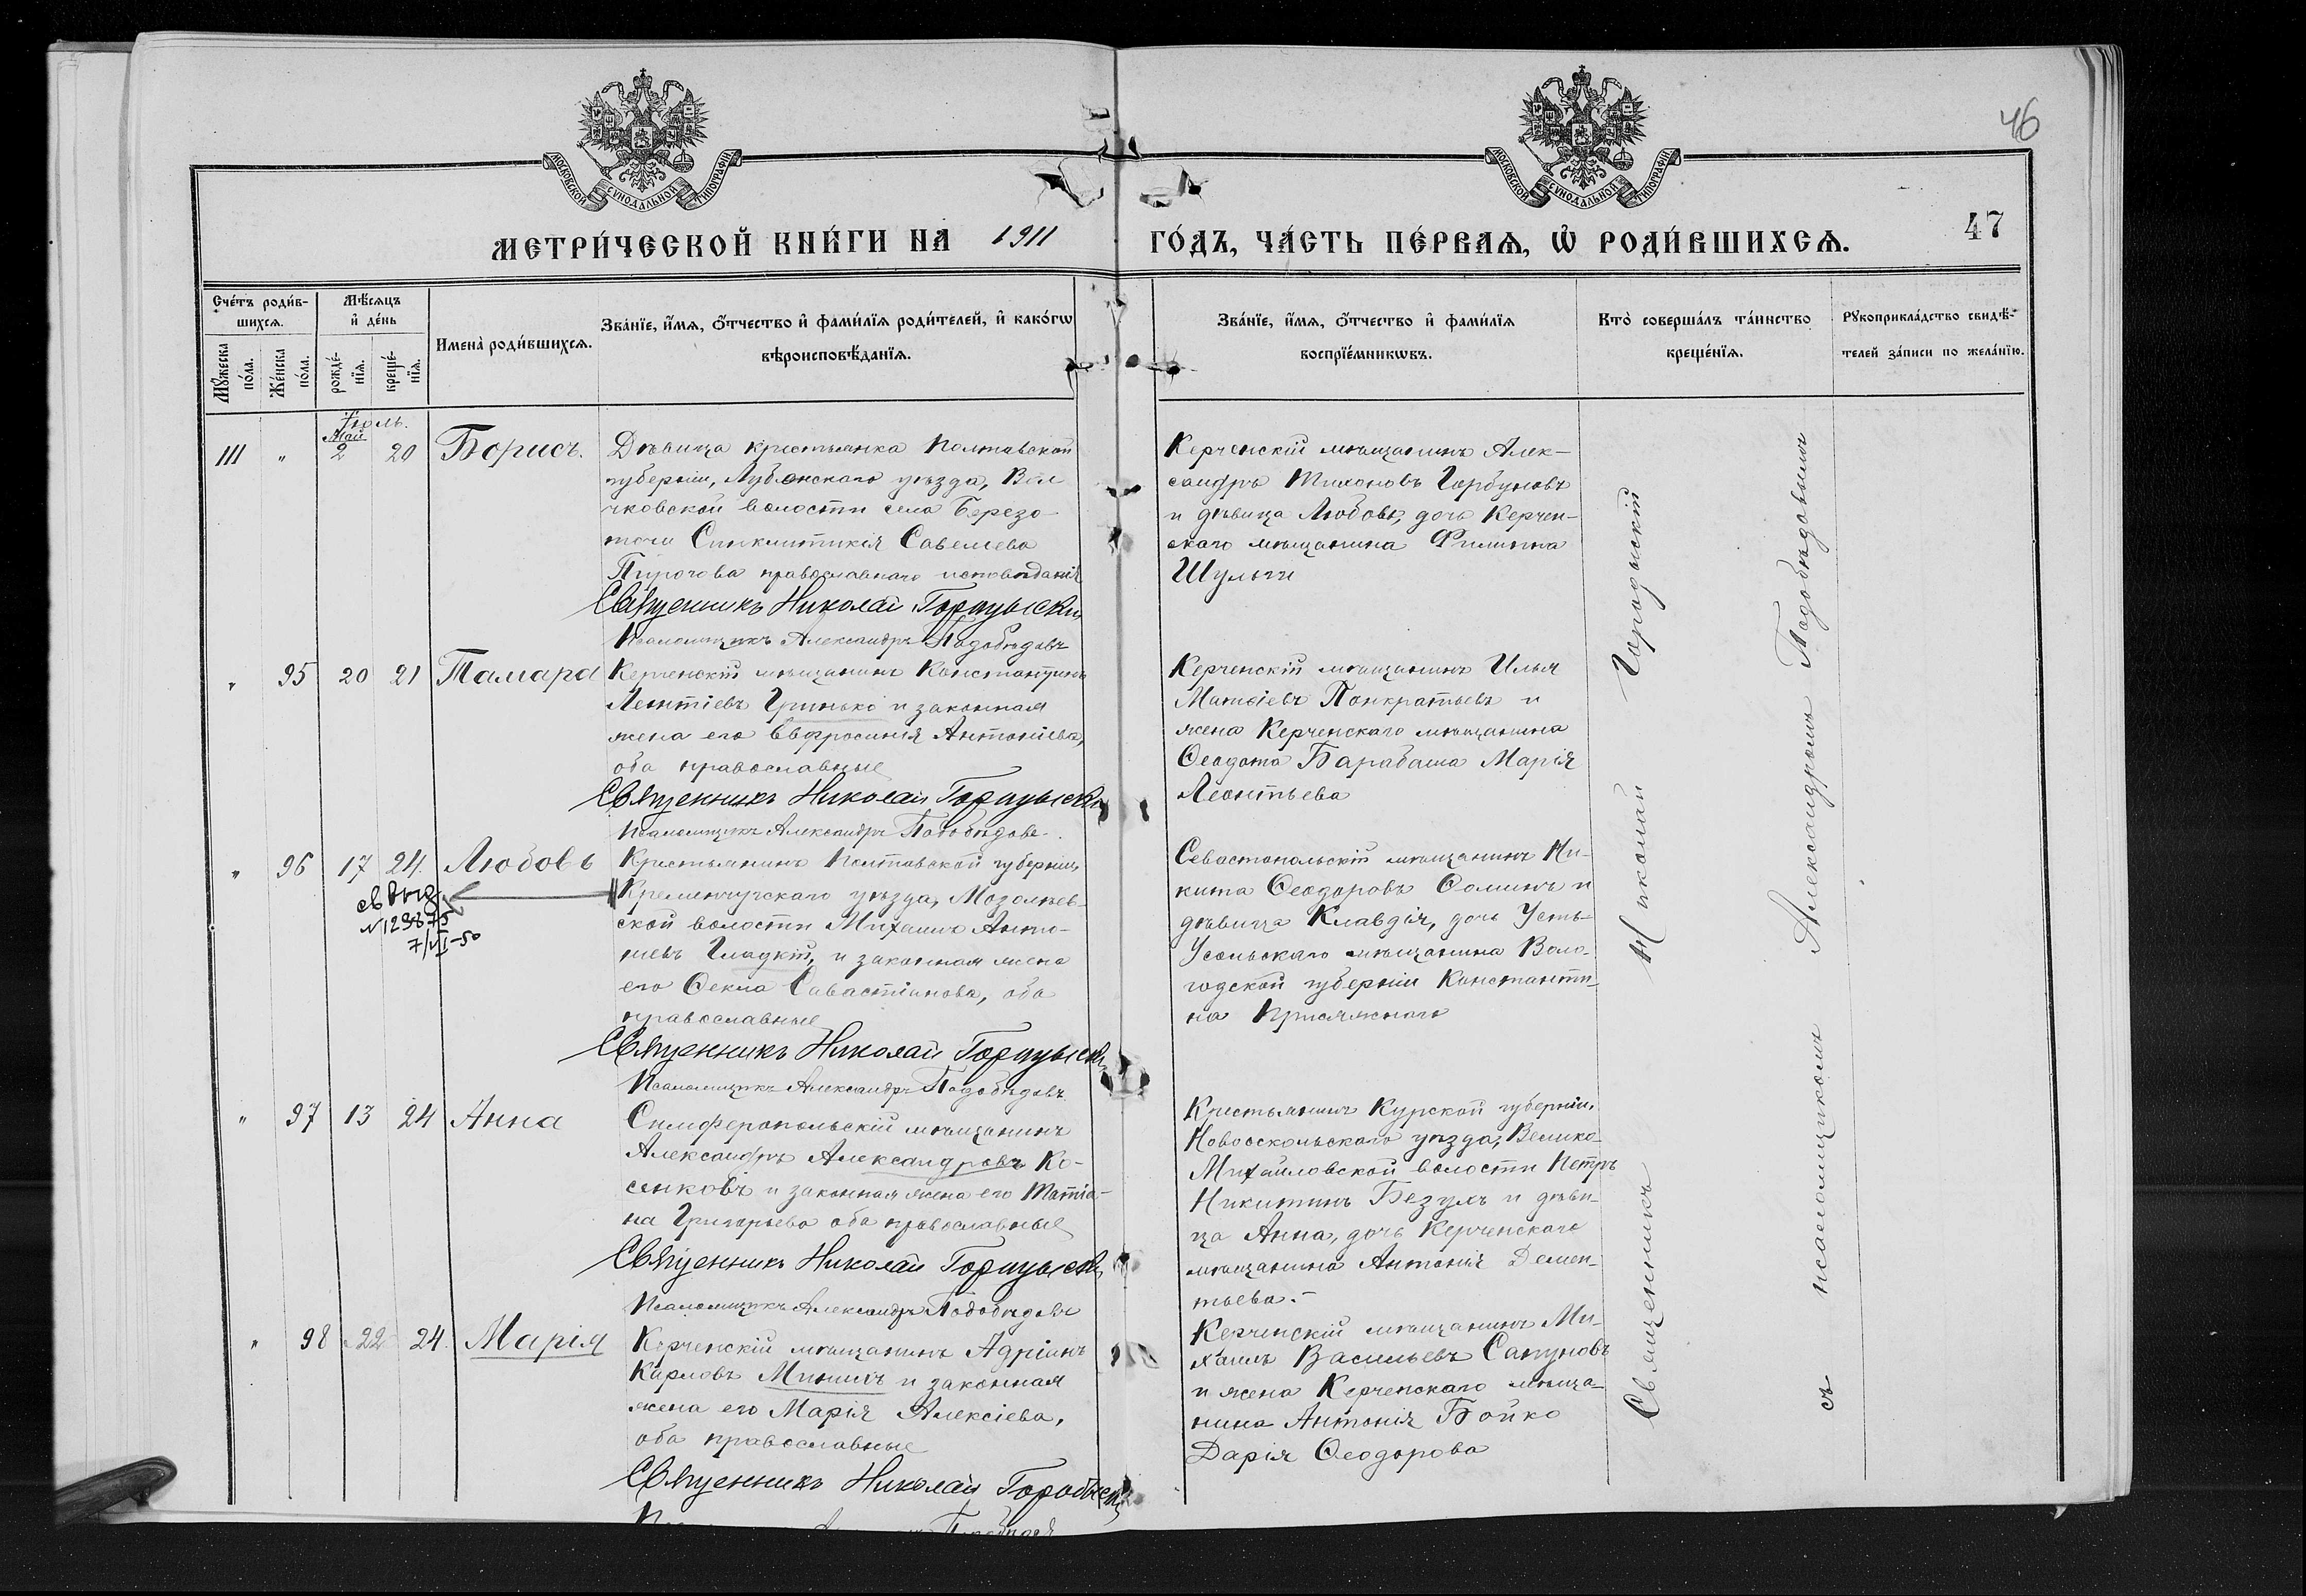 46
МОСКОВСКОЙ СѴНОДАЛЬНОЙ ТИПОГРАФІИ.
МОСКОВСКОЙ СѴНОДАЛЬНОЙ ТИПОГРАФІИ.
МЕТРИ́ЧЕСКОЙ КНИ́ГИ НА 1911 ГО́ДЪ, ЧА́СТЬ ПЕ́РВАѦ, Ѡ҆ РОДИ́ВШИХСѦ. 47
Сче́тъ роди́в-
шихсѧ.
Мꙋ́жеска
по́ла.
Же́нска
по́ла.
Мѣ́сѧцъ
и҆ де́нь
рожде́-
нїѧ.
креще́-
нїѧ.
Имена̀ роди́вшихсѧ.
Зва́нїе, и҆́мѧ, ѻ҆́тчество и҆ фами́лїѧ роди́телей, и҆ како́гѡ
вѣроисповѣ́данїѧ.
Зва́нїе, и҆́мѧ, ѻ҆́тчество и҆ фами́лїѧ
воспрїе́мникѡвъ.
Кто̀ соверша́лъ та́инство
креще́нїѧ.
Рꙋкоприкла́дство свидѣ́-
телей за́писи по жела́нїю.
Іюль.
Май
111 " 2 20 Борисъ.
Дѣвица крестьянка Полтавской
губерніи, Лубенскаго уѣзда,
чковской волости села Березо
точи Синклитикія Савелева
Пирогова православнаго исповѣданія
Священникъ Николай
Псаломщикъ Александръ Подобѣдовъ
Керченскій мѣщанинъ Алек-
сандръ Тихоновъ Горбуновъ
и дѣвица Любовь, дочь Керчен-
скаго мѣщанина Филиппа
Шульги
" 95 20 21 Тамара
Керченскій мѣщанинъ Константинъ
Леонтіевъ Гринько и законная
жена его Евфросинія Антоніева,
оба православные
Священникъ Николай
Псаломщикъ Александръ Подобѣдовъ
Керченскій мѣщанинъ Илья
Матѳіевъ Панкратьевъ и
жена Керченскаго мѣщанина
Ѳеодота Барабаша Марія
Леонтьева
" 96 17 24. Любовь
св выд
N 129875
7/VI-50
Крестьянинъ Полтавской губерніи,
Кременчугскаго уѣзда, Мозолѣев-
ской волости Михаилъ Анто-
ніевъ Гладкій, и законная жена
его Ѳекла Савастіанова, оба
православные
Священникъ Николай
Псаломщикъ Александръ Подобѣдовъ
Севастопольскій мѣщанинъ Ни-
кита Ѳеодоровъ Ѳоминъ и
дѣвица Клавдія, дочь Усть-
Усольскаго мѣщанина Воло-
годской губерніи Константи-
на Присяжнаго
" 97 13 24 Анна
Симферопольскій мѣщанинъ
Александръ Александровъ Ко-
сенковъ и законная жена его Татіа-
на Григорьева оба православные
Священникъ Николай
Псаломщикъ Александръ Подобѣдовъ
Крестьянинъ Курской губерніи,
Новооскольскаго уѣзда, Велико-
Михайловской волости Петръ
Никитинъ Безулъ и дѣви-
ца Анна, дочь Керченскаго
мѣщанина Антонія Демен-
тьева.-
" 98 22 24. Марія
Керченскій мѣщанинъ Адріанъ
Карловъ Минихъ и законная
жена его Марія Алексіева,
оба православные
Священникъ Николай
Керченскій мѣщанинъ Ми-
хаилъ Васильевъ Сапуновъ
и жена Керченскаго мѣща-
нина Антонія Бойко
Дарія Ѳеодорова
Священникъ Николай Городыскій
съ псаломщикомъ Александромъ Подобѣдовымъ